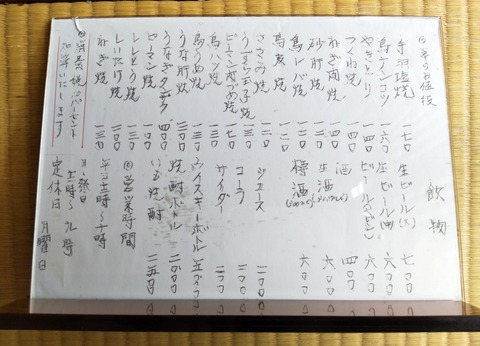 手羽塩焼 一七〇
鳥ナンコツ 一六〇
やきとり 一四〇
つくね焼 一四〇
ねぎ肉焼 一四〇
砂肝焼
鳥レバ焼 一三〇
鳥皮焼 一二〇
ささみ焼
うずら玉子焼 一三〇
ピーマン肉づめ焼 一七〇
鳥ハツ焼
鳥うめ焼
うなぎ肝焼
うなぎタンザク 四〇〇
ピーマン焼 一〇〇
ししとう焼 一三〇
しいたけ焼 二〇〇
ねぎ焼 一三〇
◎消費税
いたします
飲物
生ビール(大) 七〇〇
生ビール(中) 六〇〇
ビール 六〇〇
酒 四〇〇
生酒 六〇〇
樽酒 六〇〇
ジュース 二〇〇
コーラ 二〇〇
サイダー 二〇〇
ウイスキーボトル 五〇〇〇
焼酎ボトル 二〇〇〇
いも焼酎 二五〇〇
◎営業時間
時〜十時
日・祭日
時〜九時
定休日 月曜日